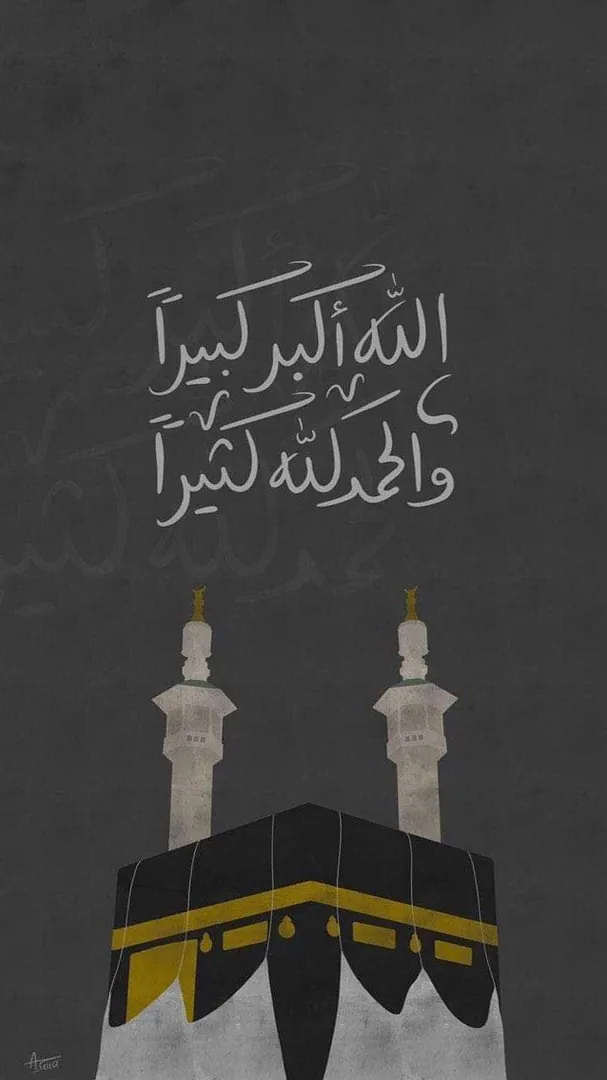 الله أكبر كبيراً
والحمد لله كثيراً